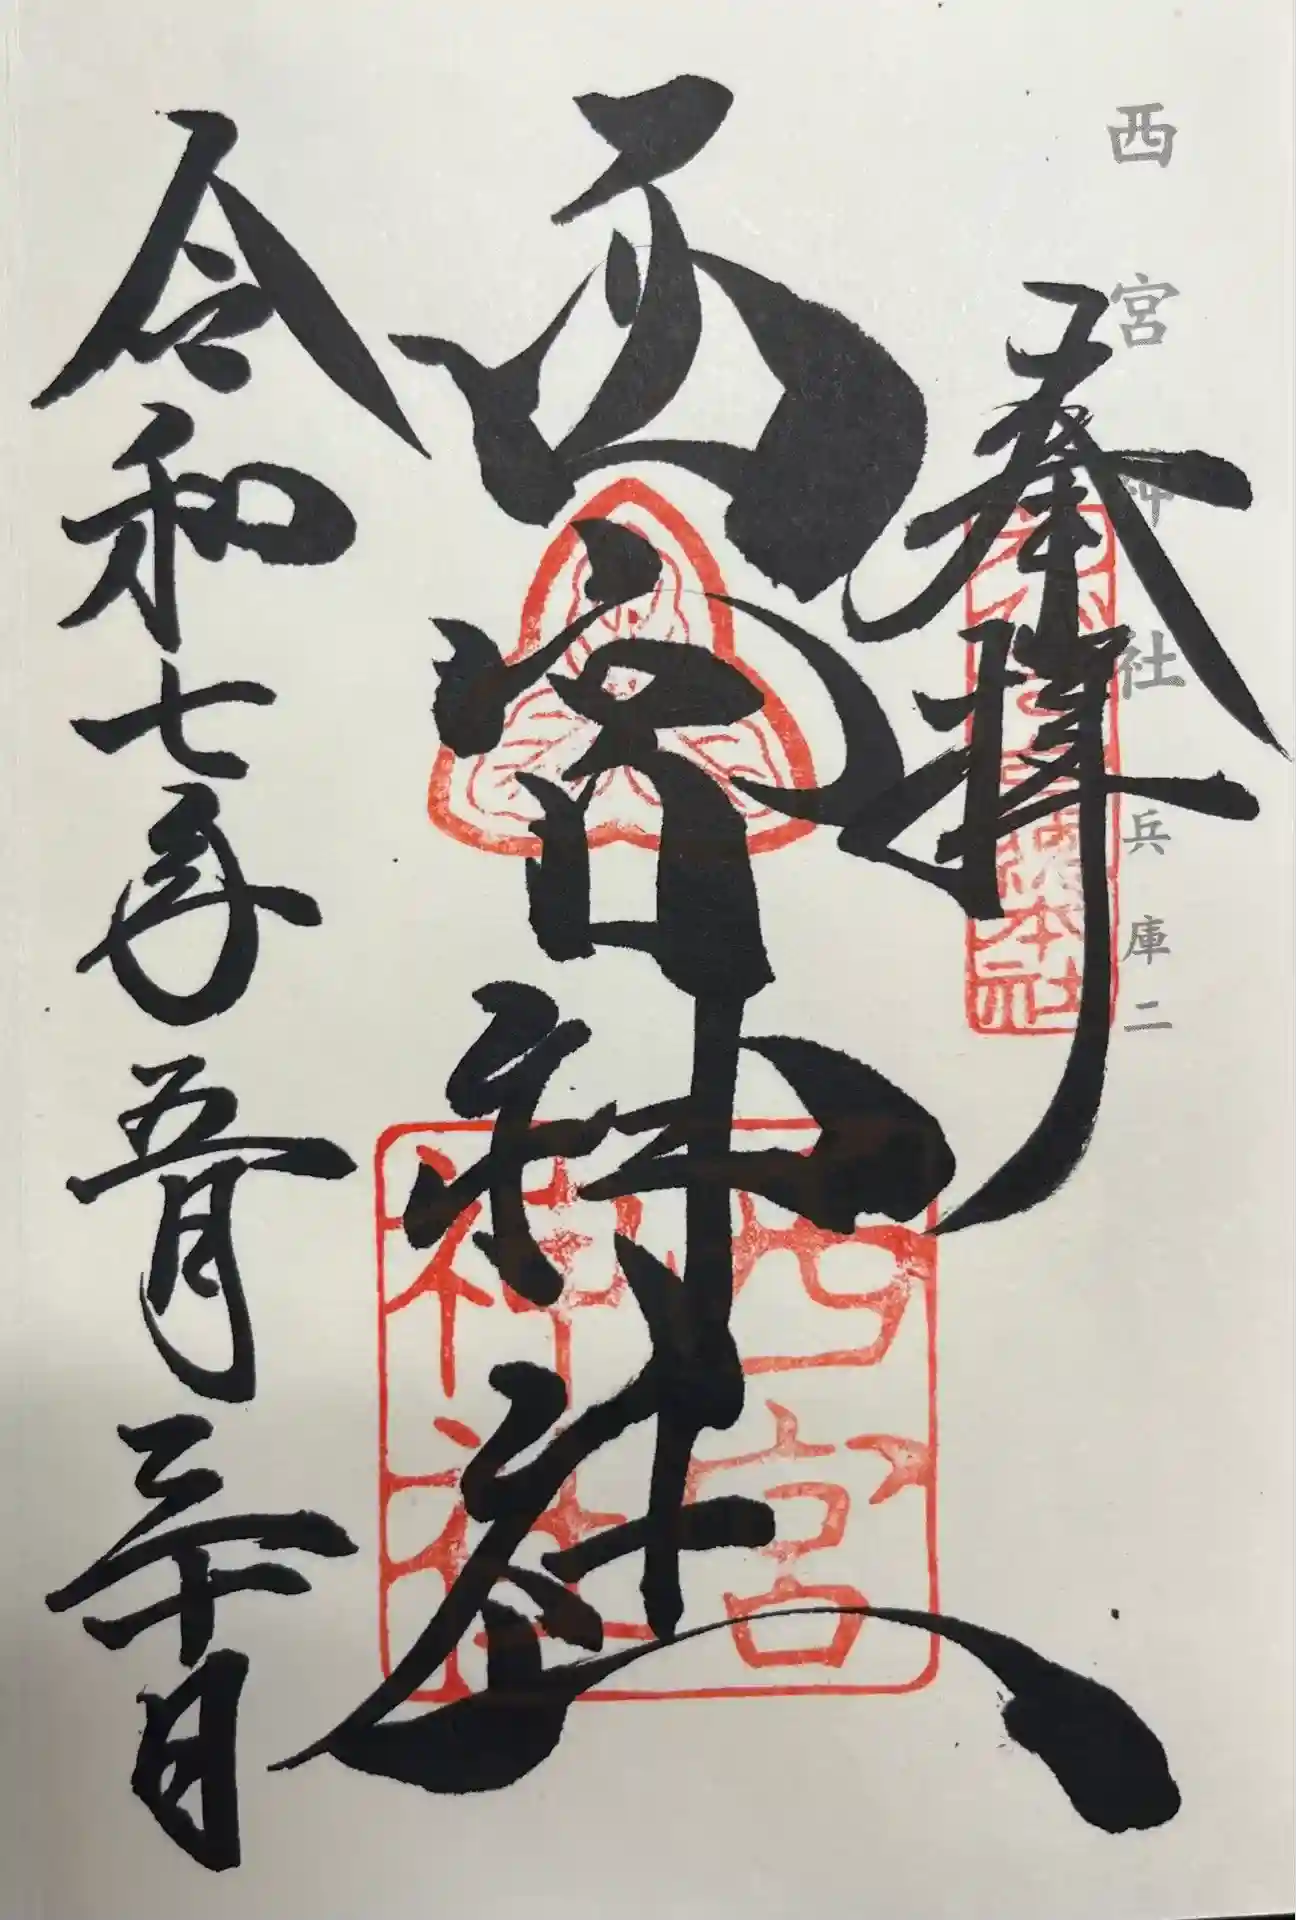 西宮神社 兵庫二
奉拝
西宮神社
令和七年五月三十日
西宮
神社
本社